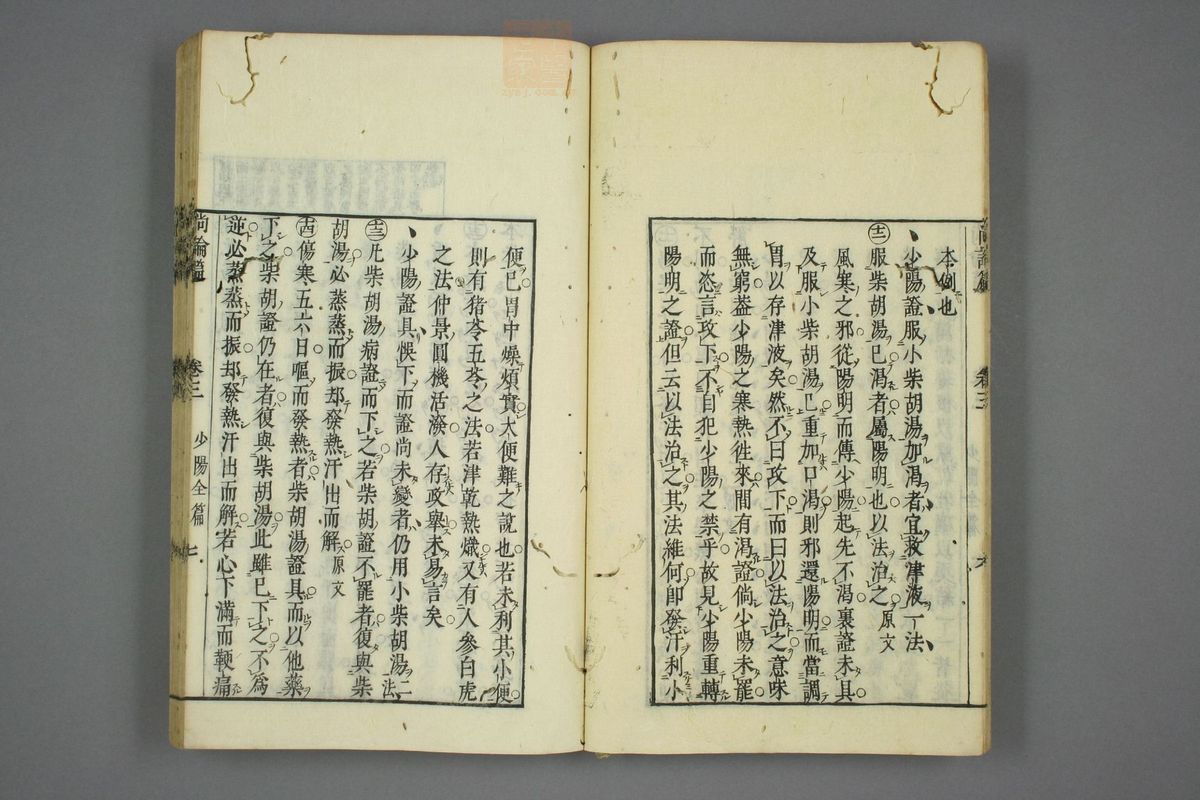 本例也
少陽證服小柴胡湯加渴者宜救津液一法
㊁服柴胡湯已渴者屬陽明也以法治之原文
風寒之邪從陽明而傳少陽起先不渴裏證未具
及服小柴胡湯已重加口渴則邪還陽明而當調
胃以存津液矣然不曰攻下而曰以法治之意味
無窮蓋少陽之寒熱徃來間有渴證倘少陽未罷
而恣言攻下不自犯少陽之禁乎故見少陽重轉
陽明之證但云以法治之其法維何卽發汗利小
六
便已胃中燥煩實大便難之說也若未利其小便
則有猪苓五苓之法若津乾熱熾又有人參白虎
之法仲景圓機活潑人存政舉未易言矣
少陽證具悞下而證尚未變者仍用小柴胡湯二法
㊂凡柴胡湯病證而下之若柴胡證不罷者復與柴
胡湯必蒸蒸而振却發熱汗出而解原文
㊃傷寒五六日嘔而發熱者柴胡湯證具而以他藥
下之柴胡證仍在者復與柴胡湯此雖已下之不爲
逆必蒸蒸而振却發熱汗出而解若心下滿而鞕痛
尚論篇
卷三
少陽全篇
七